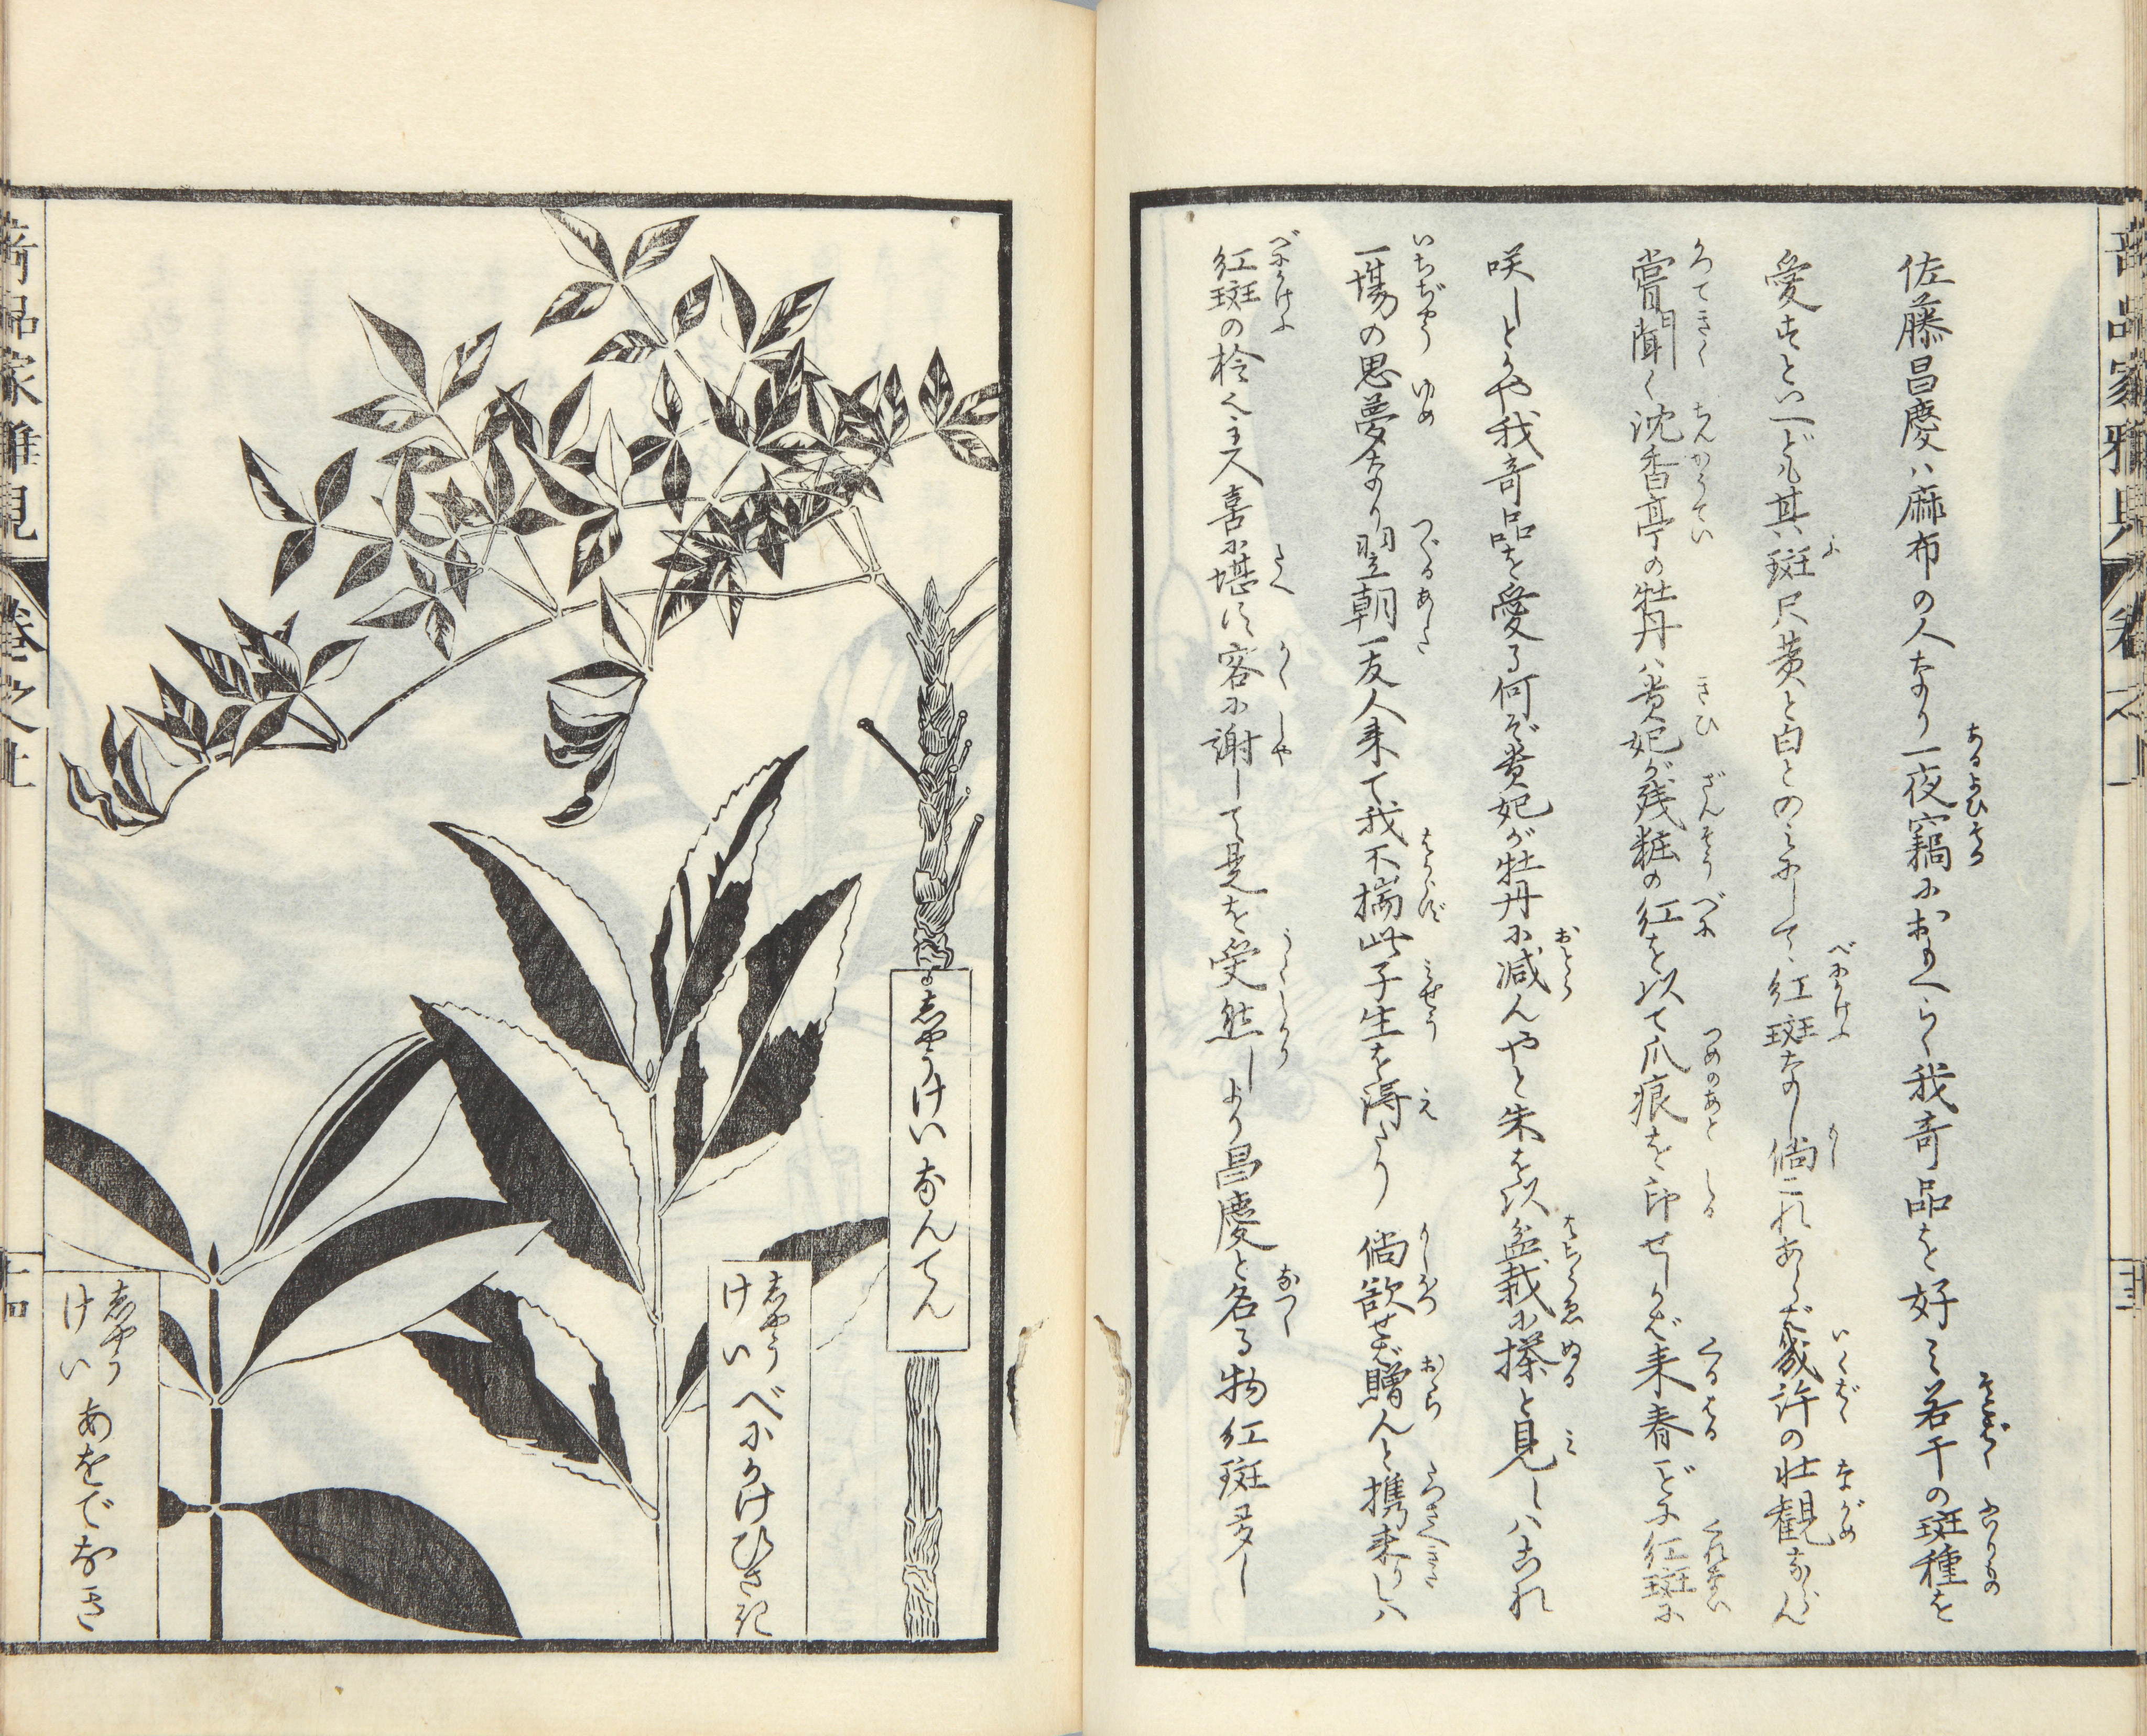 佐藤昌慶ハ麻布の人なり一夜竊におもへらく我奇品を好ミ若干の斑種を
愛すといへども其斑尺黄と白とのミにして紅斑なし倘これあらバ幾許の壮観ならん
嘗聞く沈香亭の牡丹ハ貴妃が残粧の紅を以て爪痕を印せしかば来春ごとに紅斑に
咲しとかや我奇品を愛る何ぞ貴妃が牡丹に減んやと朱を以盆栽に搽と見しハこれ
一場の思夢なり翌朝一友人来て我不揣此子生を得たり倘欲せバ贈んと携来りしハ
紅斑の柃く主人喜に堪ず客に謝して是を受然しより昌慶と名る物紅斑多し
志やうけいなんてん
志やうけいべにかけひさかき
志やうけいあをでなき
奇品家雅見
巻之上
十四